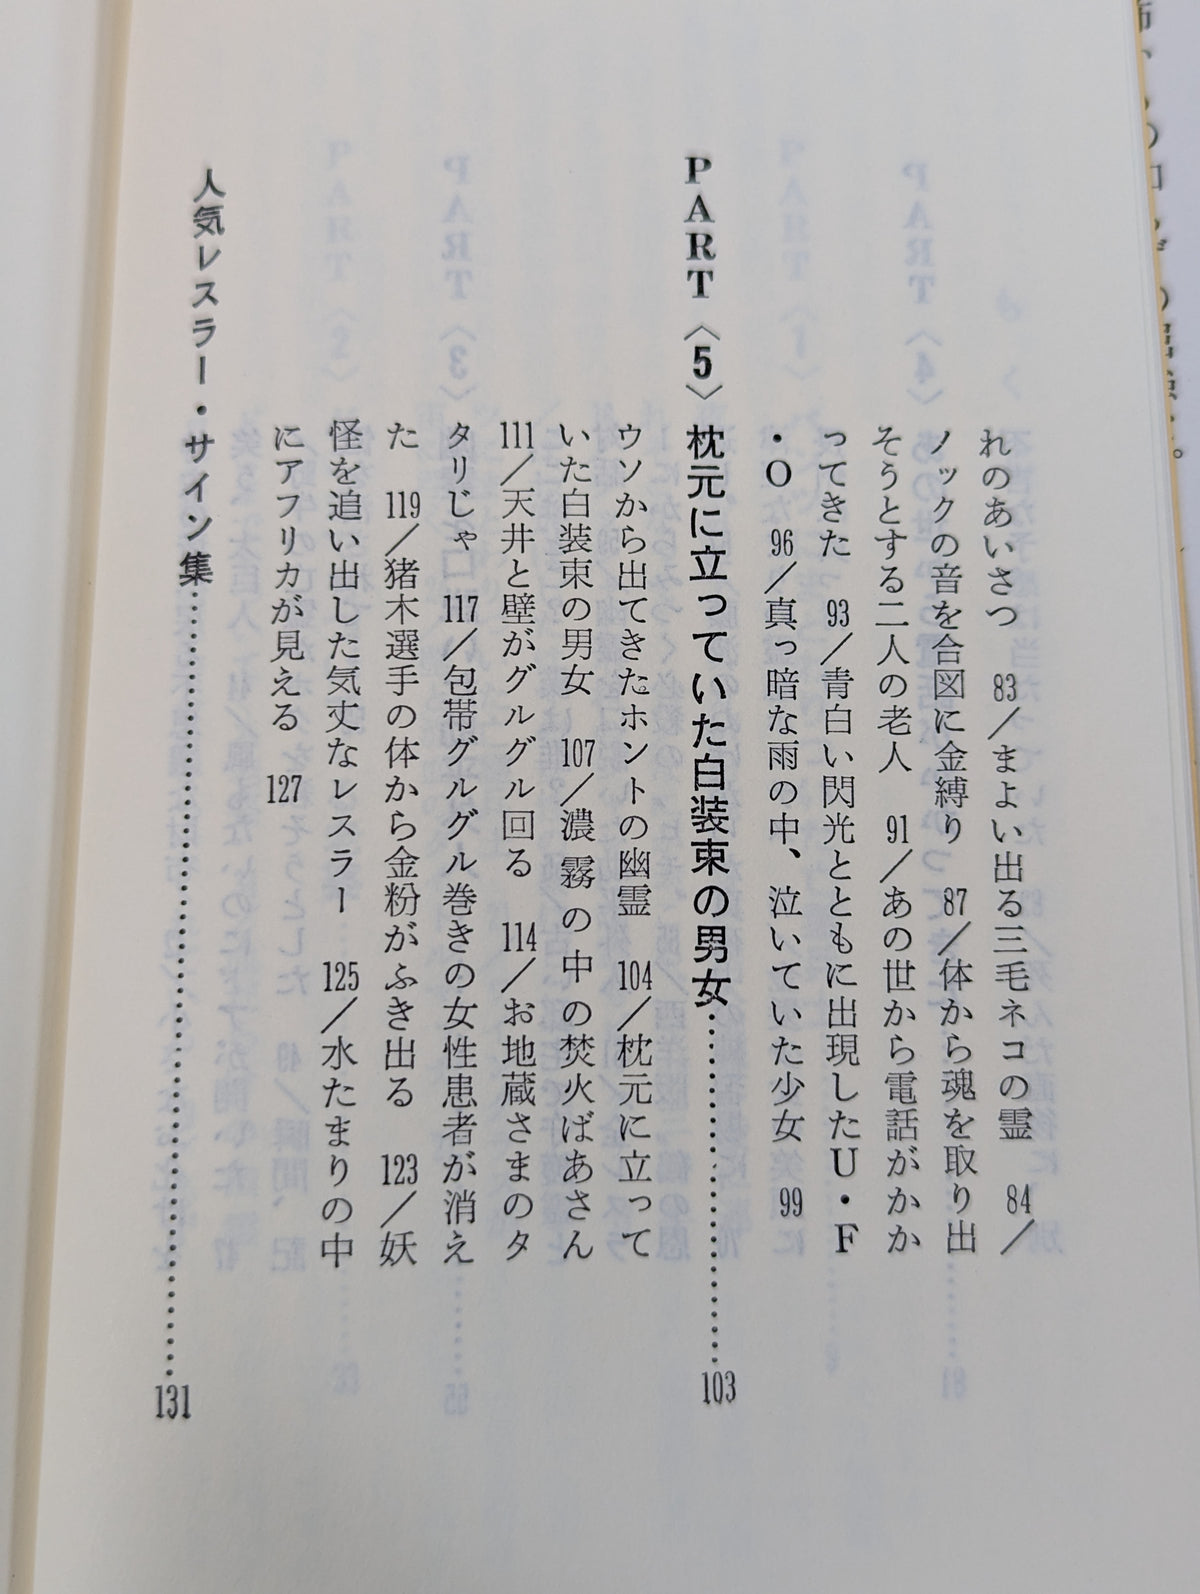 れのあいさつ　83／まよい出る三毛ネコの霊　84／
ノックの音を合図に金縛り　87／体から魂を取り出
そうとする二人の老人　91／あの世から電話がかか
ってきた　93／青白い閃光とともに出現したU・F
・O　96／真っ暗な雨の中、泣いていた少女　99
PART〈5〉枕元に立っていた白装束の男女……………………103
ウソから出てきたホントの幽霊　104／枕元に立って
いた白装束の男女　107／濃霧の中の焚火ばあさん
111／天井と壁がグルグル回る　114／お地蔵さまのタ
タリじゃ　117／包帯グルグル巻きの女性患者が消え
た　119／猪木選手の体から金粉がふき出る　123／妖
怪を追い出した気丈なレスラー　125／水たまりの中
にアフリカが見える　127
人気レスラー・サイン集……………………………………131